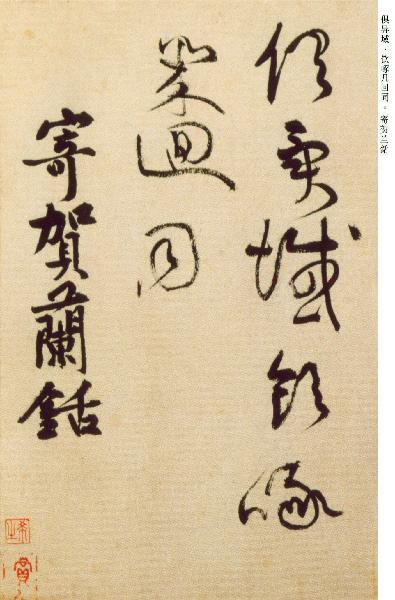 俱异域，饮啄几回同。寄贺兰铦
俱異域飲啄
幾迴同
寄賀蘭銛